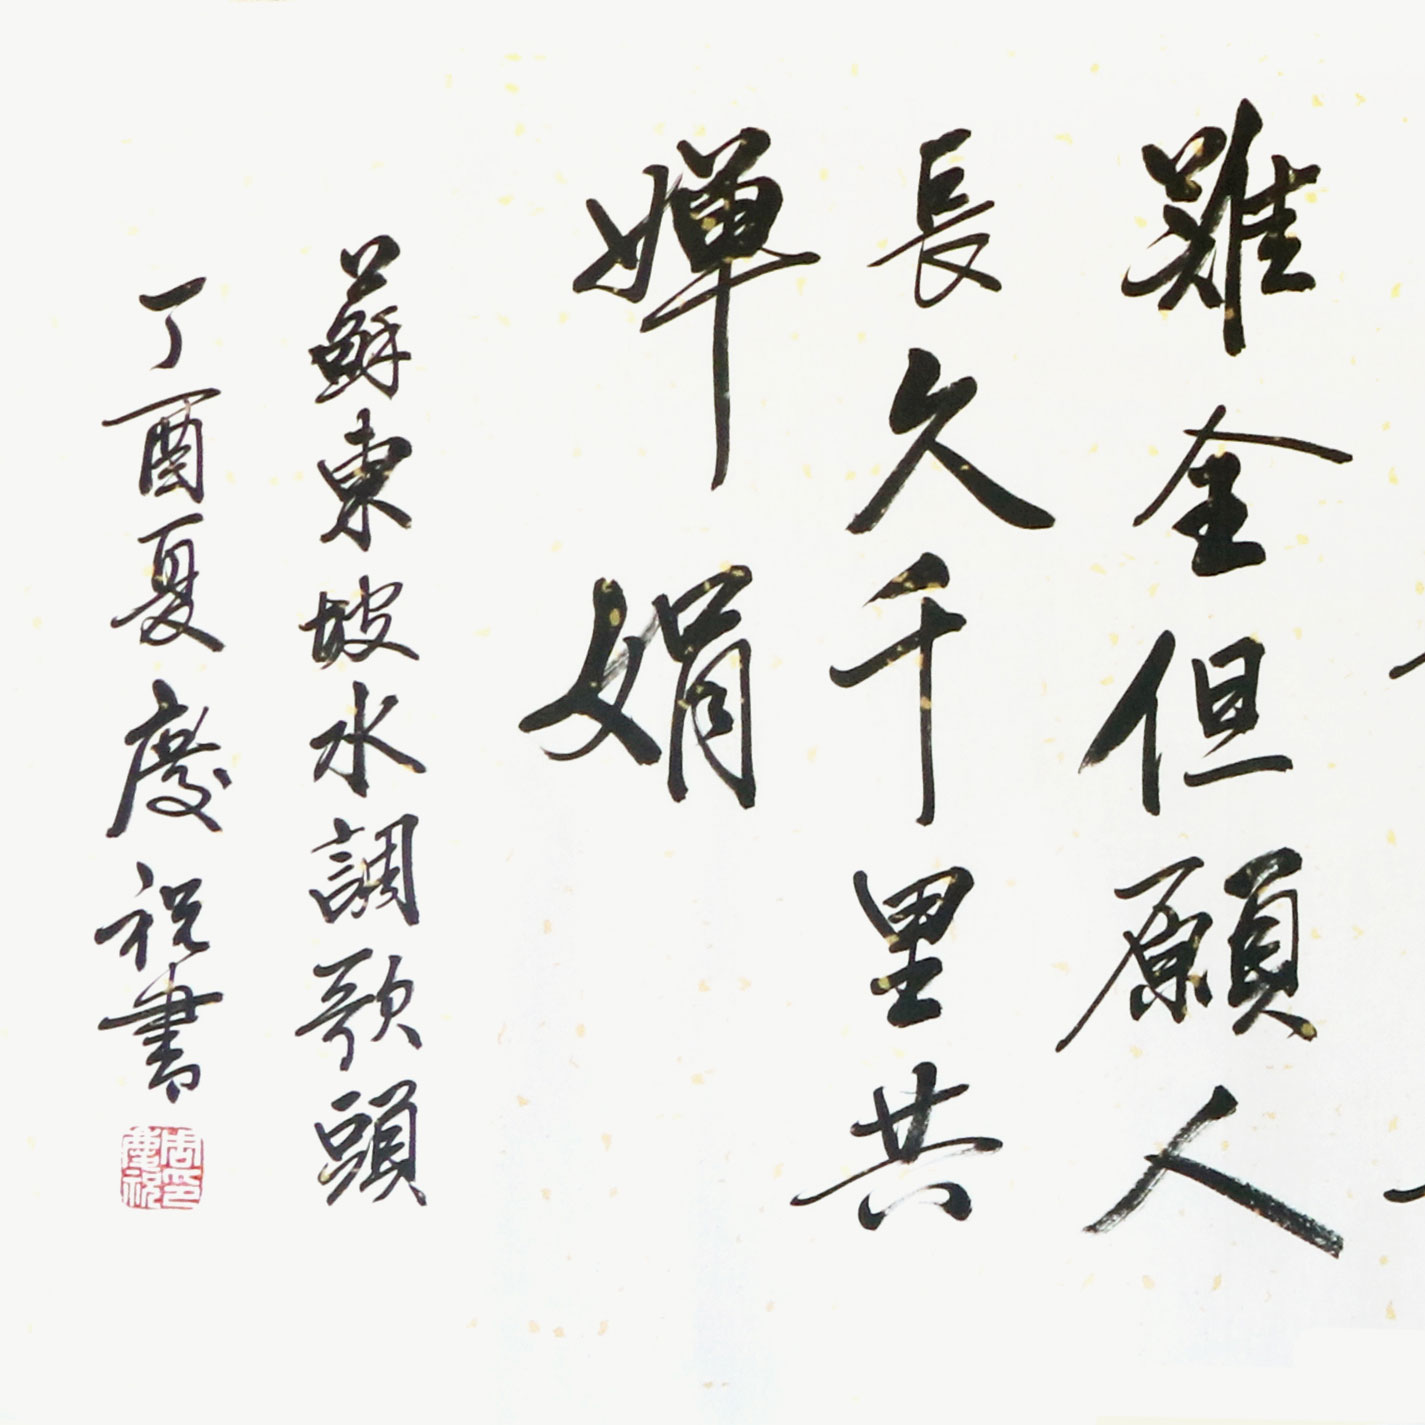 難全但願人
長久千里共
嬋娟
蘇東坡水調歌頭
丁酉夏慶祝書
周印慶祝